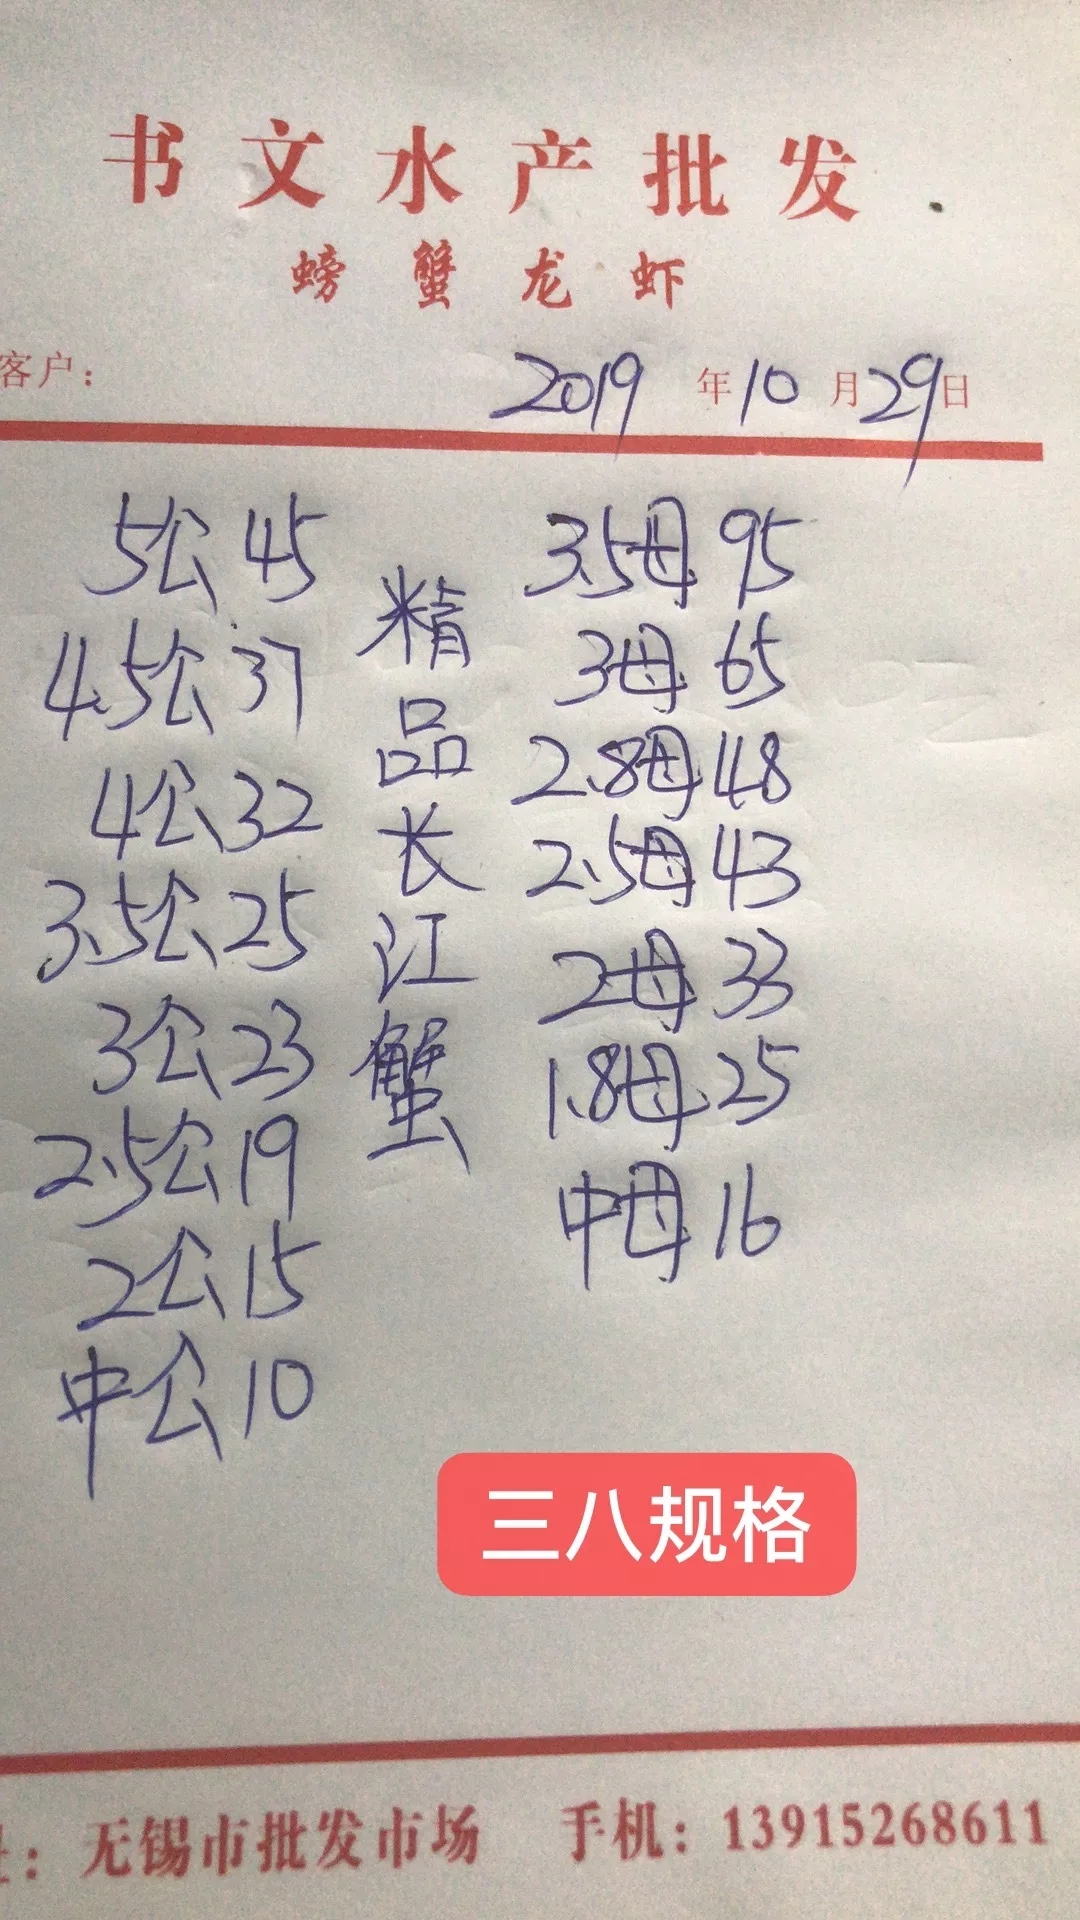 书文水产批发
螃蟹龙虾
客户：
2019年10月29日
5公 45
4.5公 37
4公 32
3.5公 25
3公 23
2.5公 19
2公 15
中公 10
精品长江蟹
3.5母 95
3母 65
2.8母 48
2.5母 43
2母 33
1.8母 25
中母 16
三八规格
址：无锡市批发市场 手机：13915268611